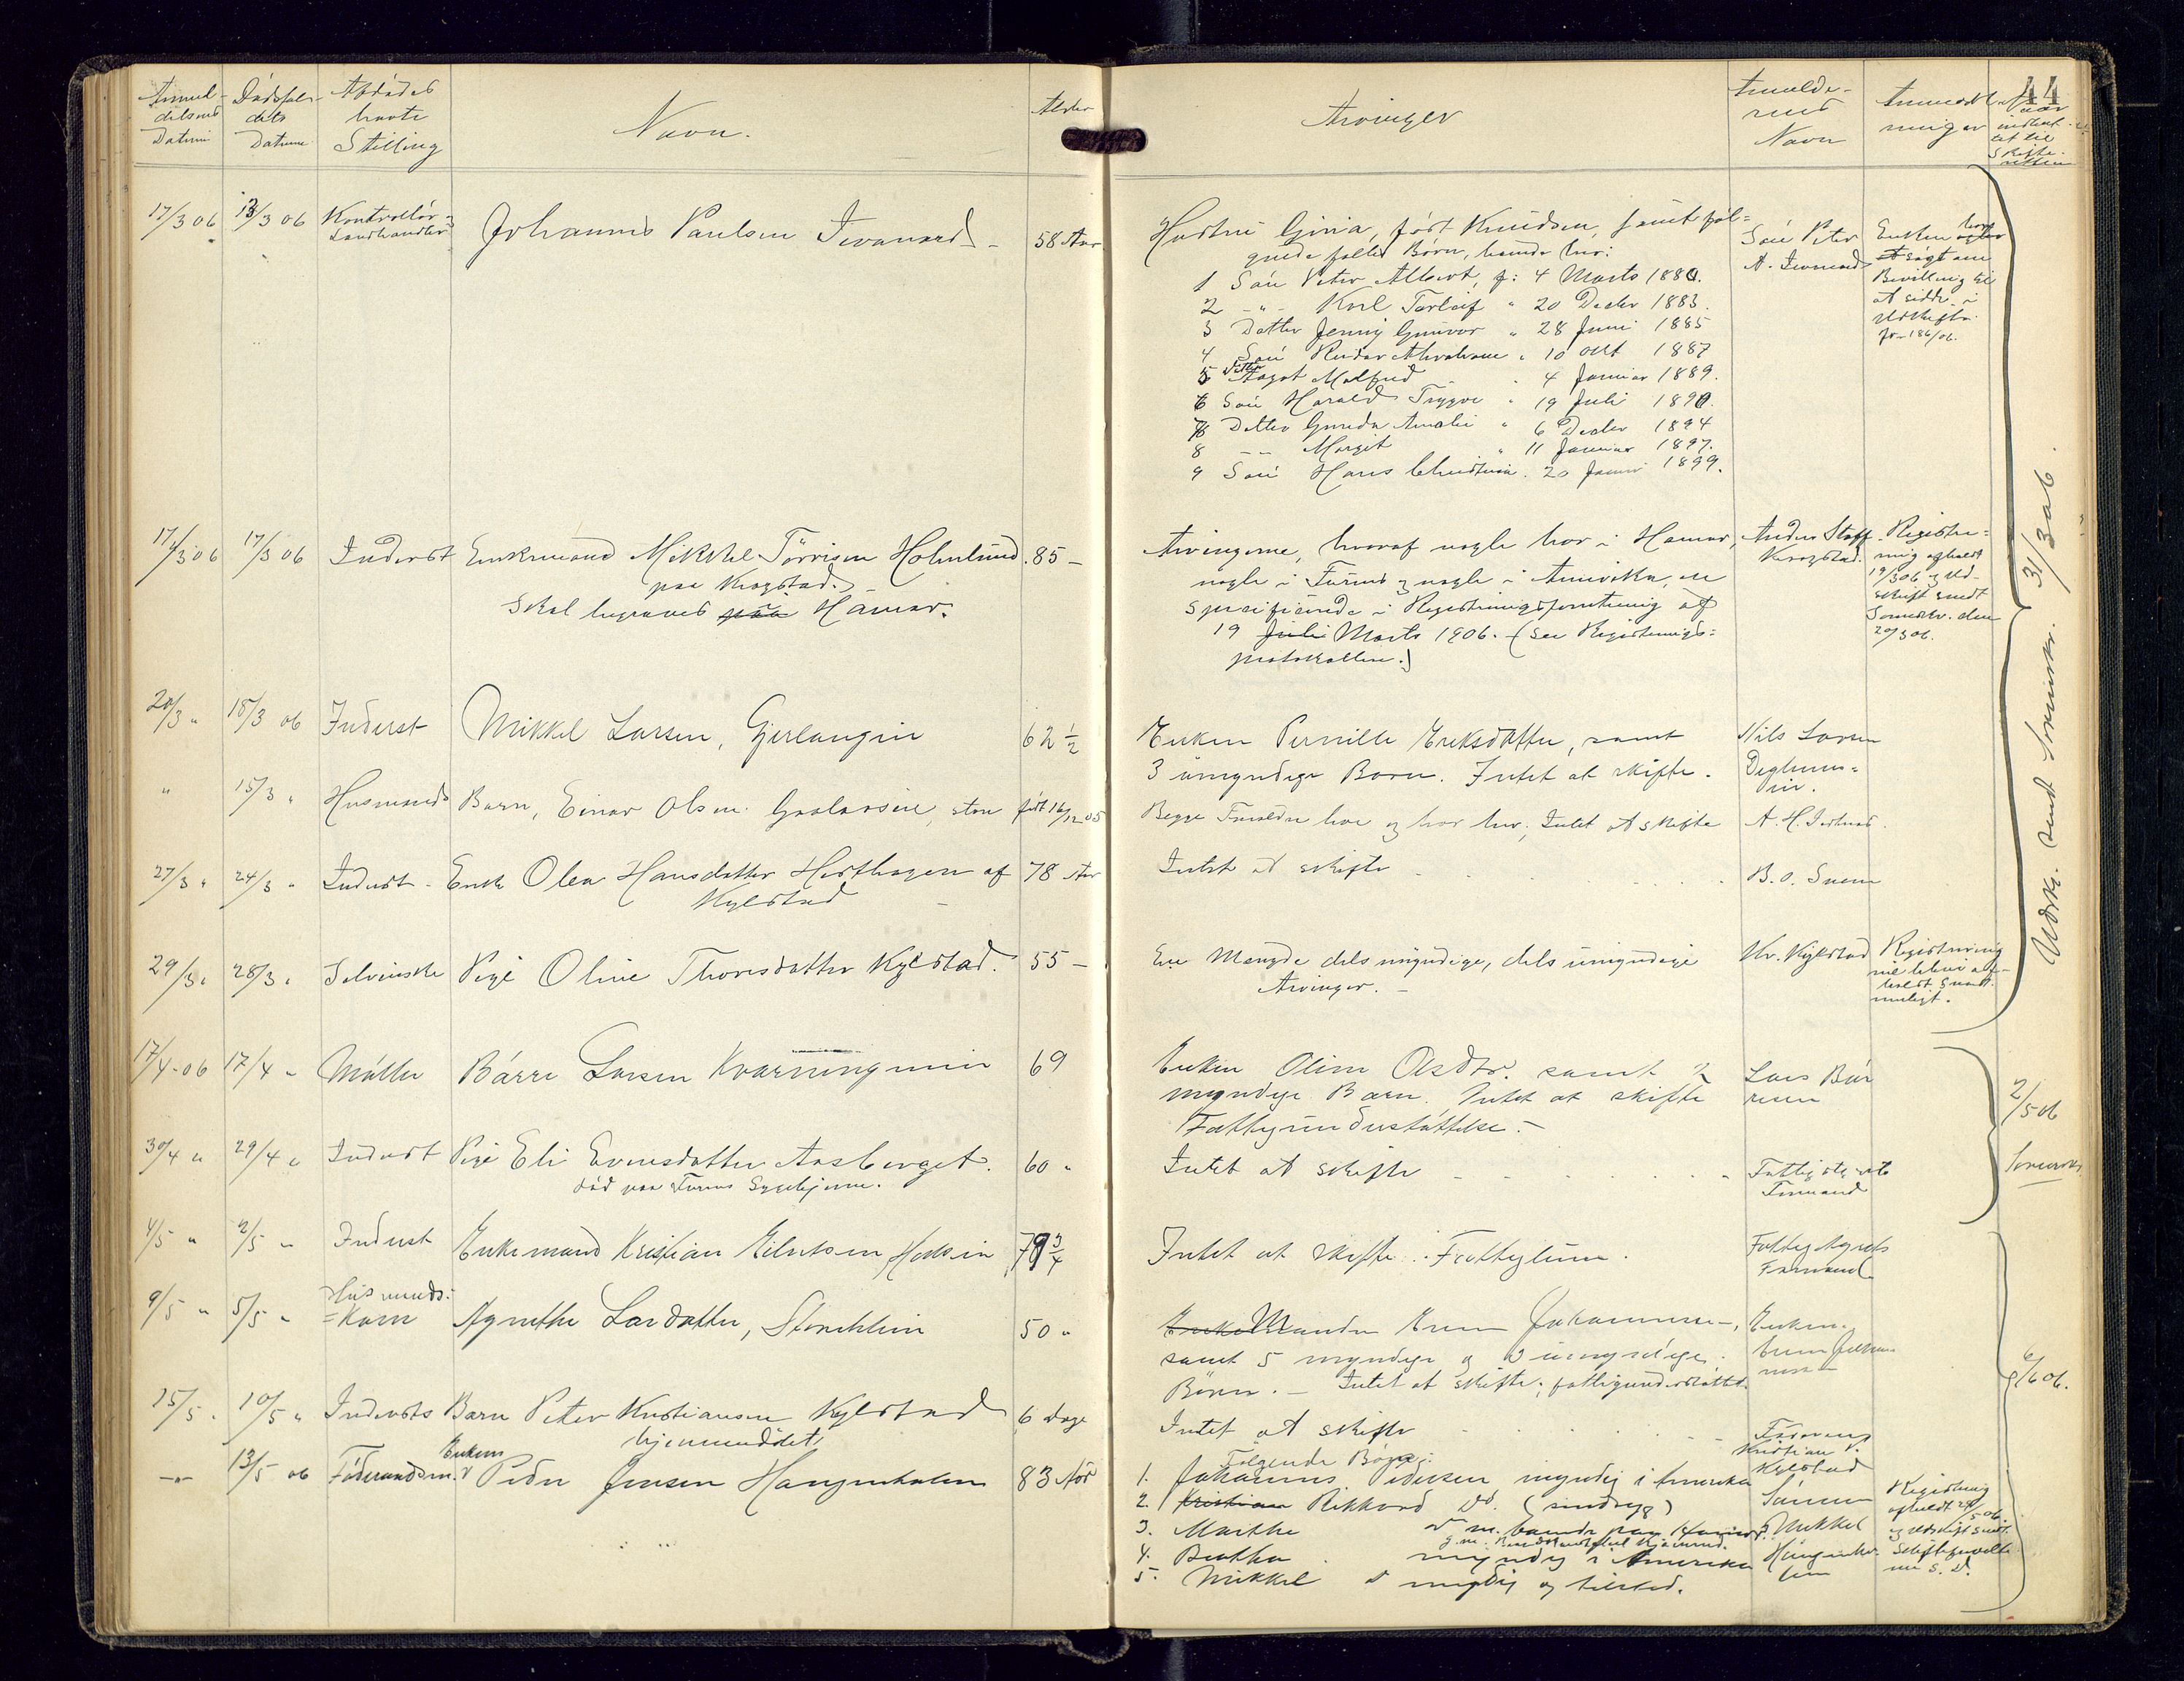 44
Anmel-
delsens
Datum
Dødsfal-
dets
Datum
Afdødes
havte
Stilling
Navn.
Alder
Arvinger
Anmelde-
rens
Navn
Anmærk-
ninger
Naar
indberet-
tet til
Skifte-
retten
17/3 06 13/3 06 Kontrollør &
Landhandler
Johannes Paulsen 58 Aar
Hustru født Knudsen, samt føl-
gende fælles Børn, hendes her:
1 Søn Peter Albert, f: 4 Marts 1880.
2 -"- Karl Torleif " 20 Decbr 1883.
3 Datter Jenny Gunvor " 28 Juni 1885
4 Søn Reidar Abraham " 10 Okt 1887
5 Datter Aagot Malfred " 4 Januar 1889.
6 Søn Harald Trygve " 19 Juli 1890.
7 Datter Gunda Amalie " 6 Decbr 1894
8 -"- Margit " 11 Januar 1897.
9 Søn Hans Christian " 20 Januar 1899.
Søn Peter
A.
Enken har
søgt om
Bevilling til
at sidde i
Uskifte
Jr. 186/06.
17/3 06 17/3 06 Inderst Enkemand Mikkel Tørrisen Holmlund 85 -
paa Krogstad.
Skal begraves paa Hamar.
Arvingerne, hvoraf nogle bor i Hamar,
nogle i Furnes og nogle i Amerika, er
specificerede i Registreringsforretning af
19 Juli Marts 1906. (See Registrerings-
protokollen.)
Anders Staff
Krogstad.
Registre-
ring afholdt
19/3 06 og Ud-
skrift sendt
Sorenskr. den
20/3 06.
20/3 " 18/3 06 Inderst Mikkel Larsen, 62 1/2
Enken Pernille Eriksdatter, samt
3 umyndige Børn. Intet at skifte.
Nils Larsen
" 15/3 " Husmands Barn, Einar Olsen født 16/12 05
Begge Forældre lever og bor her; Intet at skifte A. H.
27/3 " 24/3 " Inderst - Enke Olea Hansdatter af 78 Aar
Kylstad
Intet at skifte B. O.
29/3 " 28/3 " Selveierske Pige Oline Thoresdatter Kylstad. 55 -
En Mængde dels myndige, dels umyndige
Arvinger. -
Hr. Kylstad
Registrering
vil blive af-
holdt snarest
muligt.
Udskr. sendt Sorenskr. 31/3 06.
17/4-06 17/4 " Møller Børre Larsen 69
Enken Oline Olsdtr. samt 2
myndige Børn. Intet at skifte
Fattigunderstøttelse. -
Lars Bør-
resen
30/4 " 29/4 " Inderst Pige Eli Evensdatter Aasberget. 60 "
død paa Furnes Sygehjem.
Intet at skifte
Fattigstyrets
Formand
2/5 06
Sorenskr.
4/5 " 2/5 " Inderst Enkemand Kristian 79 3/4
Intet at skifte. Fattiglem.
Fattigstyrets
Formand
9/5 " 5/5 " Husmands-
Kone Agnethe Larsdatter, 50 "
Enke Manden Even Johannesen,
samt 5 myndige og 2 umyndige
Børn. - Intet at skifte; fattigunderstøttet.
Enkem.
Even Johan-
nesen
15/5 " 10/5 " Indersts Barn Peter Kristiansen Kylstad 6 Dage
hjemmedøbt
Intet at skifte
Faderen
Kristian P.
Kylstad
-"- 13/5 06 Føderaadsm. Enkem. Peder Jensen Haugenholen 83 Aar
Følgende Børn:
1. Johannes Pedersen myndig i Amerika
2. Kristian Rikkard do. (sindsyg)
3. Marthe
4. Berthe myndig i Amerika
5. Mikkel myndig og tilsted.
Sønnen
Mikkel
Haugenho-
len
Registrering
afholdt
og Udskrift sendt
Skifteforvalte-
ren S. D.
9/6 06.